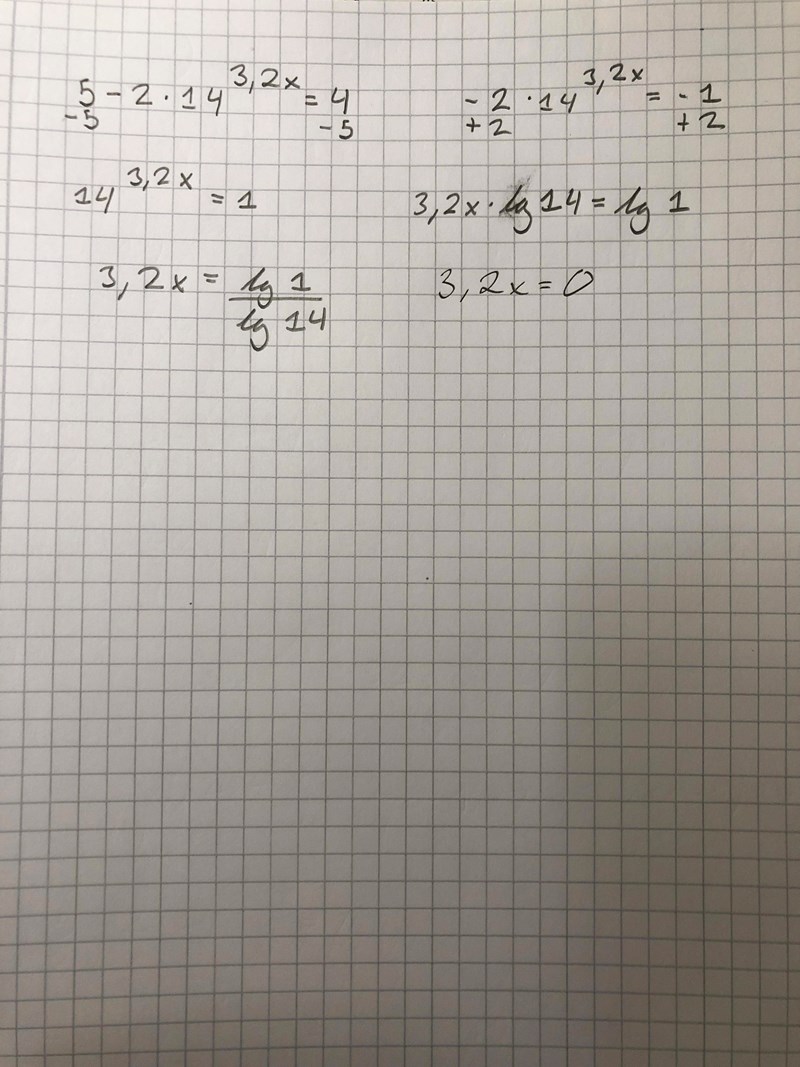 5 - 2 · 14^3,2x = 4    -2 · 14^3,2x = -1
-5    -5    +2    +2
14^3,2x = 1    3,2x · lg 14 = lg 1
3,2x = lg 1 / lg 14    3,2x = 0